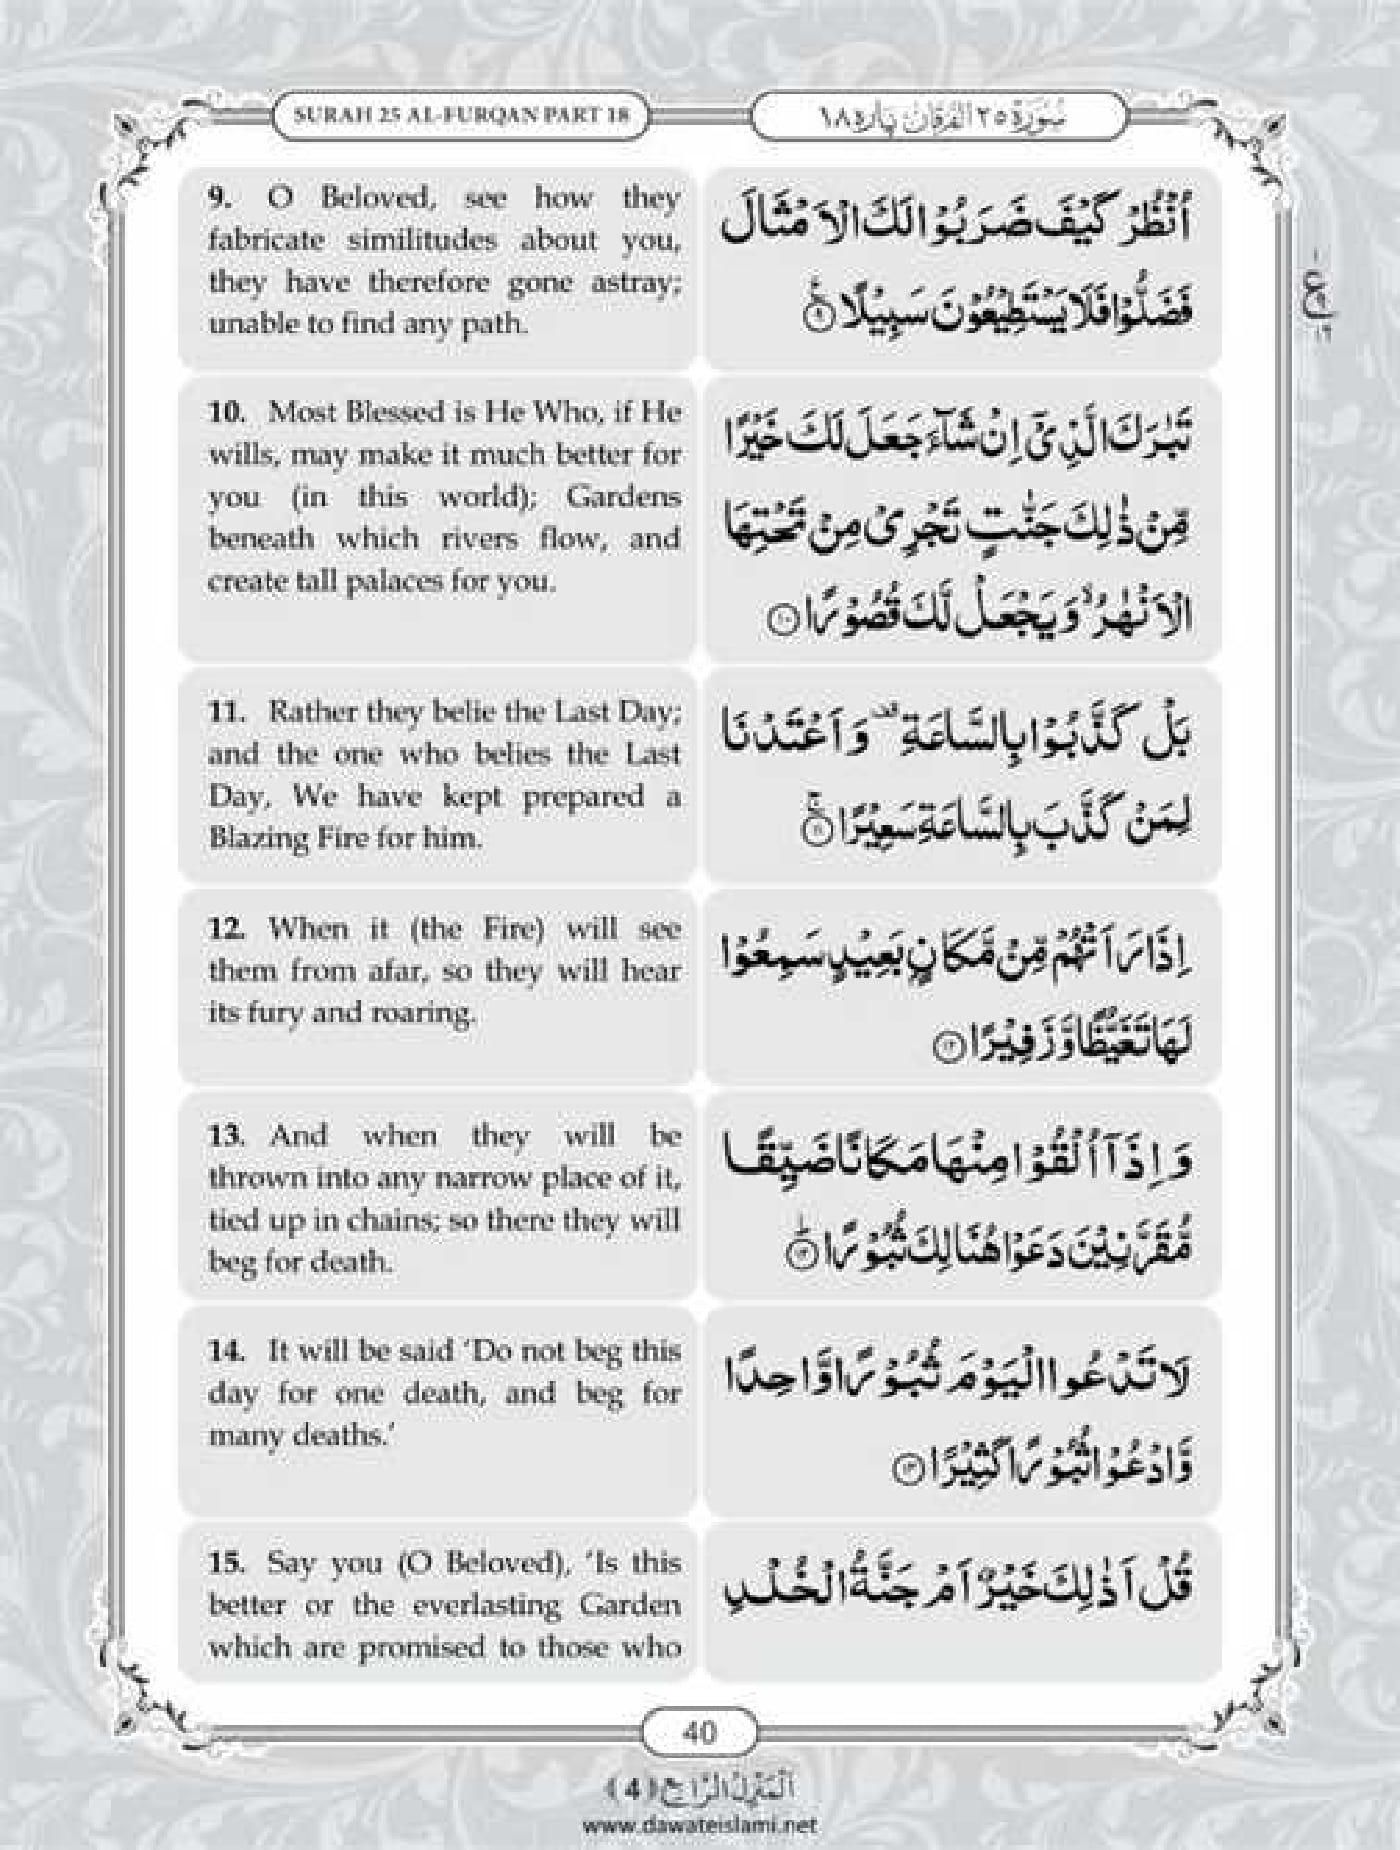 SURAH 25 AL-FURQAN PART 18
سُوْرَةُ ٢٥ الْفُرْقَان پارہ ١٨
9. O Beloved, see how they
fabricate similitudes about you,
they have therefore gone astray;
unable to find any path.
اُنْظُرْ كَيْفَ ضَرَبُوْا لَكَ الْاَمْثَالَ
فَضَلُّوْا فَلَا يَسْتَطِيْعُوْنَ سَبِيْلًا ۹
10. Most Blessed is He Who, if He
wills, may make it much better for
you (in this world); Gardens
beneath which rivers flow, and
create tall palaces for you.
تَبٰرَكَ الَّذِيْۤ اِنْ شَآءَ جَعَلَ لَكَ خَيْرًا
مِّنْ ذٰلِكَ جَنّٰتٍ تَجْرِيْ مِنْ تَحْتِهَا
الْاَنْهٰرُ ۙ وَ يَجْعَلْ لَّكَ قُصُوْرًا ۱۰
11. Rather they belie the Last Day;
and the one who belies the Last
Day, We have kept prepared a
Blazing Fire for him.
بَلْ كَذَّبُوْا بِالسَّاعَةِ وَ اَعْتَدْنَا
لِمَنْ كَذَّبَ بِالسَّاعَةِ سَعِيْرًا ۱۱
12. When it (the Fire) will see
them from afar, so they will hear
its fury and roaring.
اِذَا رَاَتْهُمْ مِّنْ مَّكَانٍۭ بَعِيْدٍ سَمِعُوْا
لَهَا تَغَيُّظًا وَّ زَفِيْرًا ۱۲
13. And when they will be
thrown into any narrow place of it,
tied up in chains; so there they will
beg for death.
وَ اِذَاۤ اُلْقُوْا مِنْهَا مَكَانًا ضَيِّقًا
مُّقَرَّنِيْنَ دَعَوْا هُنَالِكَ ثُبُوْرًا ۱۳
14. It will be said ‘Do not beg this
day for one death, and beg for
many deaths.’
لَا تَدْعُوا الْيَوْمَ ثُبُوْرًا وَّاحِدًا
وَّ ادْعُوْا ثُبُوْرًا كَثِيْرًا ۱۴
15. Say you (O Beloved), ‘Is this
better or the everlasting Garden
which are promised to those who
قُلْ اَذٰلِكَ خَيْرٌ اَمْ جَنَّةُ الْخُلْدِ
40
اَلْمَنْزِلُ الرَّابِع (4)
www.dawateislami.net